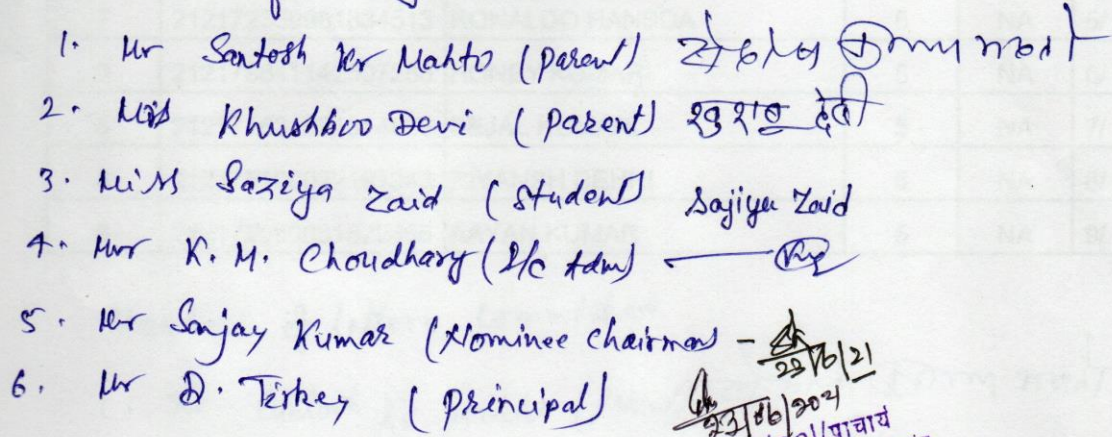 1. Mr Santosh Kr Mahto (Parent) संतोष कुमार महतो
2. Miss Khushboo Devi (Parent) खुशबू देवी
3. Miss Saziya Zaid (Student) Sajiya Zaid
4. Mr K. M. Choudhary (I/c Adm)
5. Mr Sanjay Kumar (Nominee Chairman) - 23/6/21
6. Mr D. Tirkey (Principal) 23/06/2021
/प्राचार्य